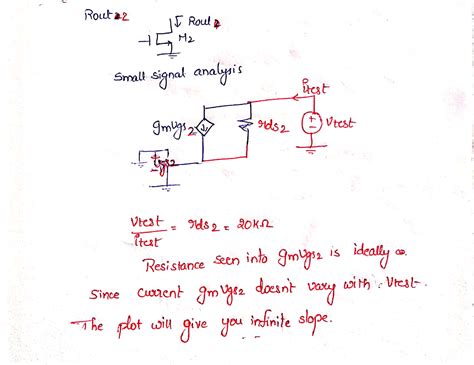 Rout2
Rout2
M2
Small signal analysis
itest
gmvgs2
rds2
Vtest
vgs2
Vtest/itest = rds2 = 20KΩ
Resistance seen into gmvgs2 is ideally ∞.
Since current gmvgs2 doesn't vary with Vtest.
The plot will give you infinite slope.